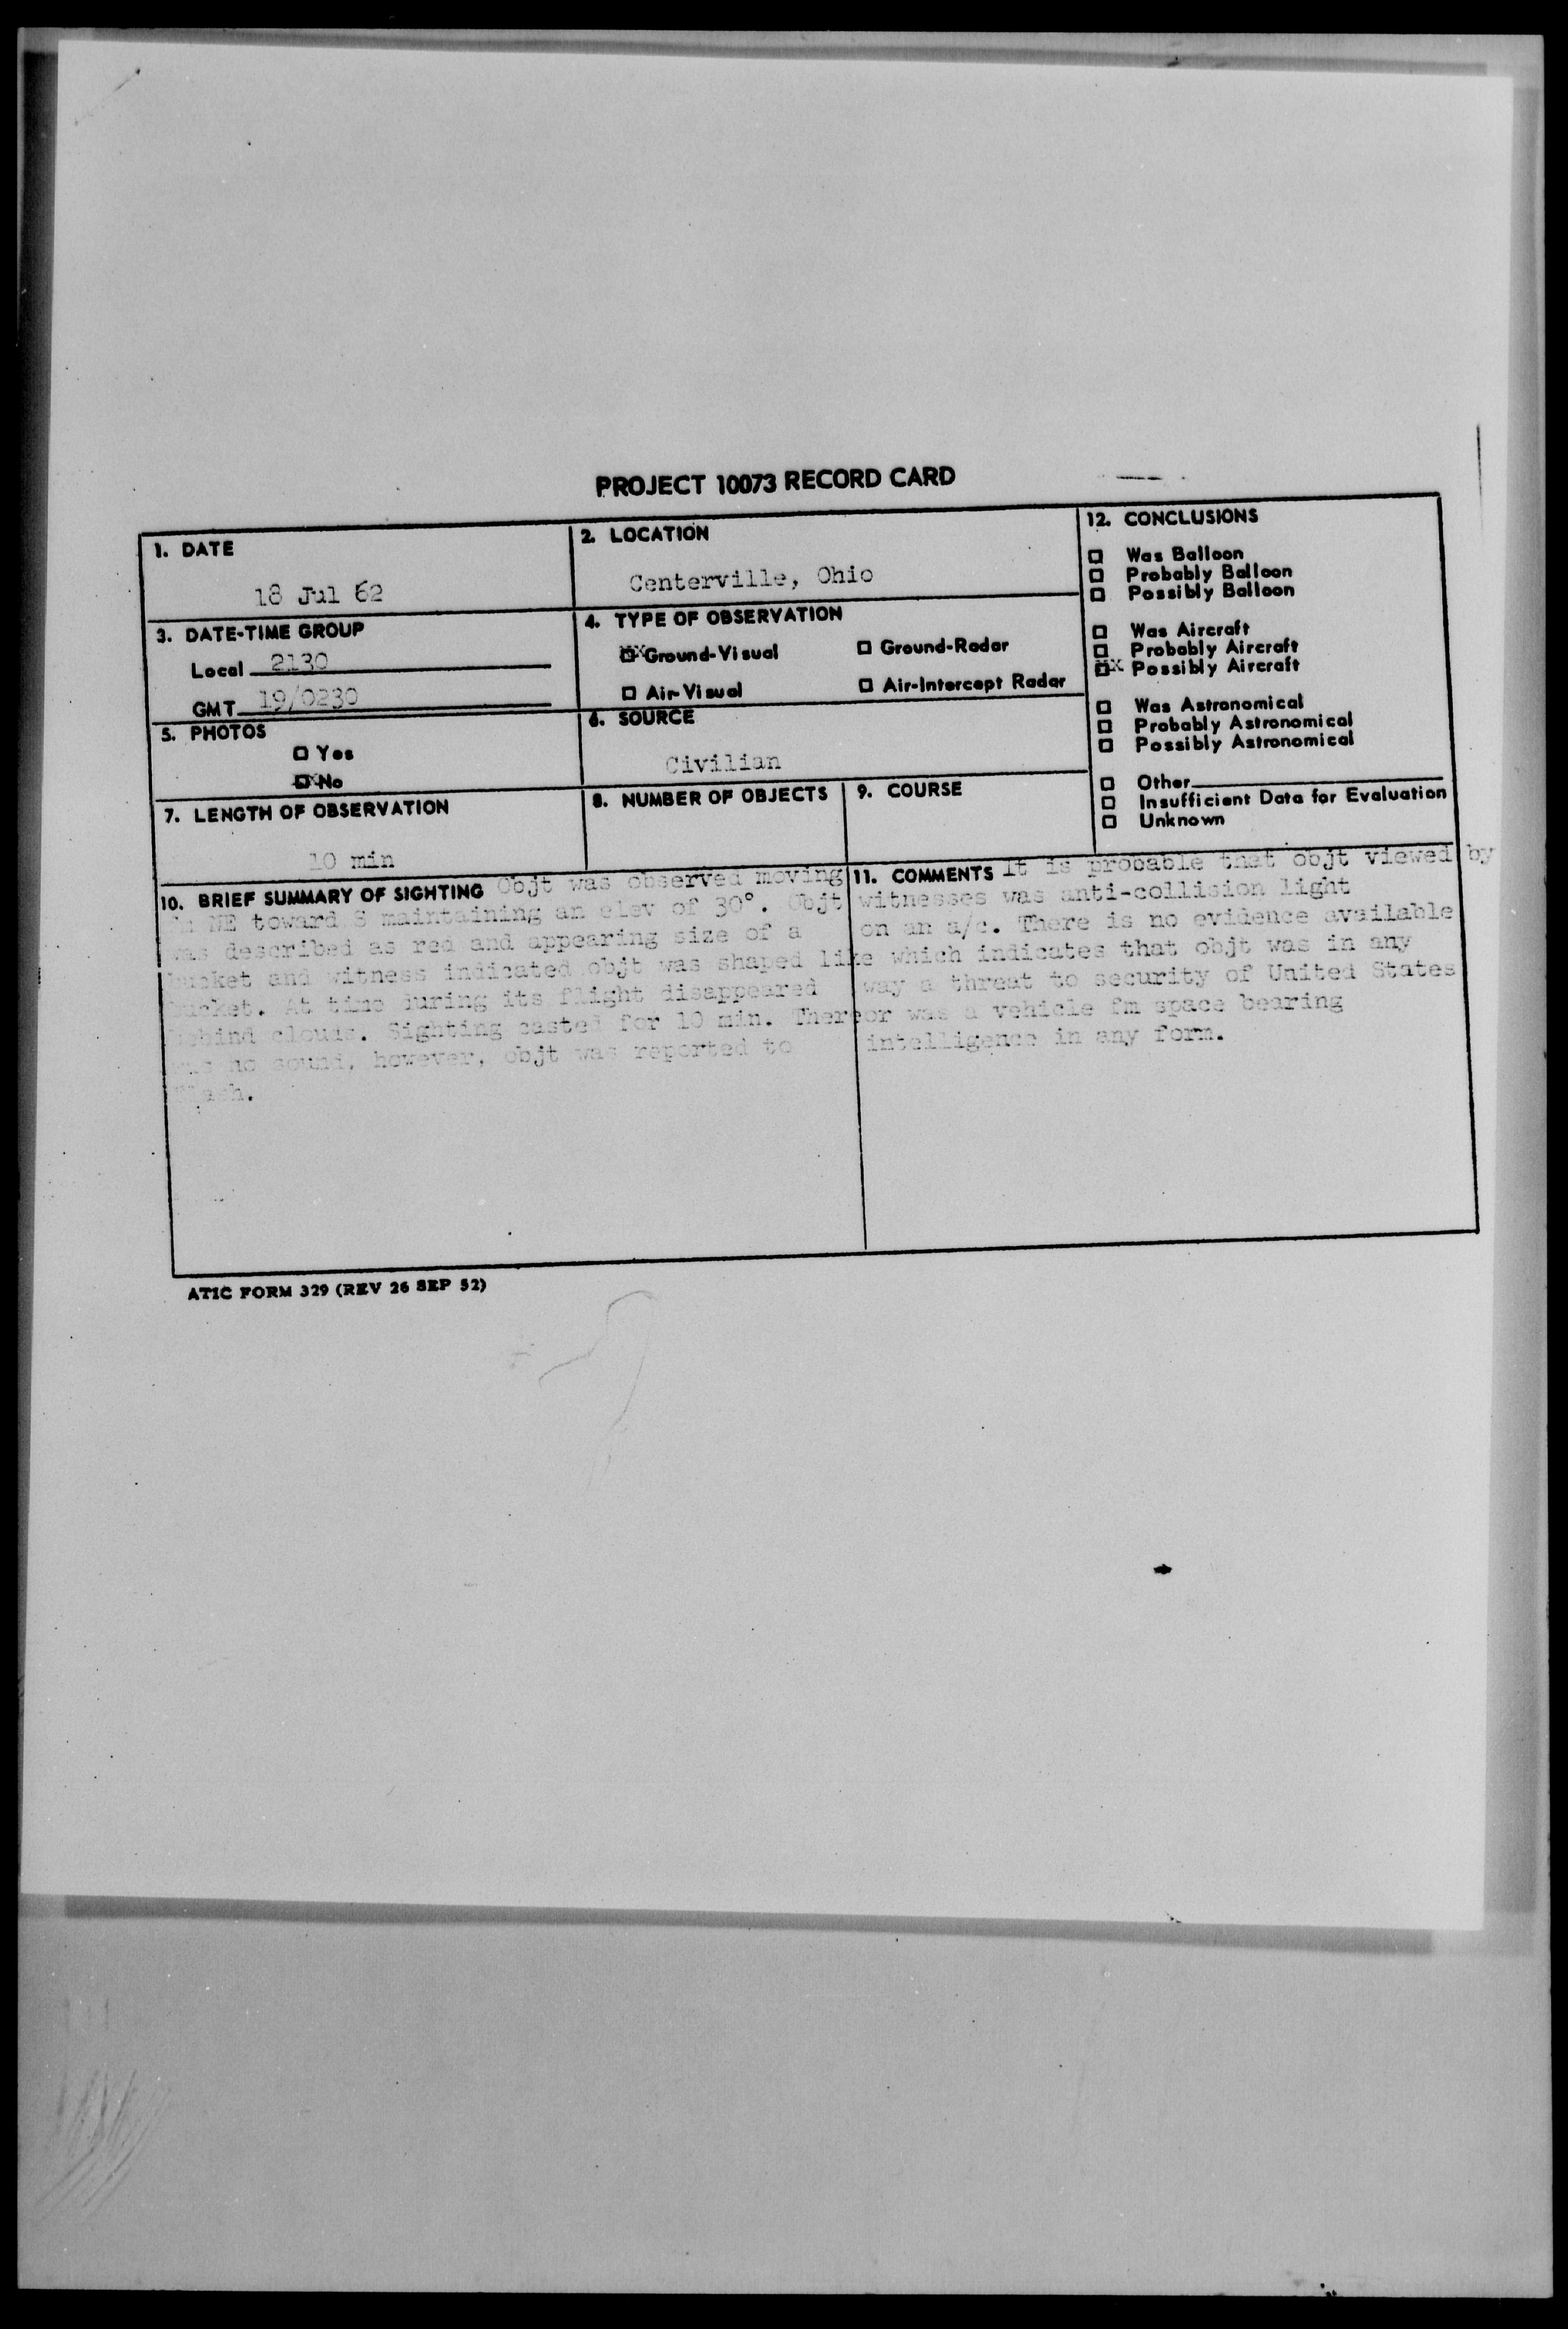 PROJECT 10073 RECORD CARD
1. DATE
18 Jul 62
2. LOCATION
Centerville, Ohio
3. DATE-TIME GROUP
Local 2130
GMT 19/0230
4. TYPE OF OBSERVATION
Ground-Visual
Ground-Radar
Air-Visual
Air-Intercept Radar
5. PHOTOS
Yes
No
6. SOURCE
Civilian
7. LENGTH OF OBSERVATION
10 min
8. NUMBER OF OBJECTS
9. COURSE
12. CONCLUSIONS
Was Balloon
Probably Balloon
Possibly Balloon
Was Aircraft
Probably Aircraft
Possibly Aircraft
Was Astronomical
Probably Astronomical
Possibly Astronomical
Other
Insufficient Data for Evaluation
Unknown
10. BRIEF SUMMARY OF SIGHTING Objt was observed moving
NE toward S maintaining an elev of 30°. Objt
was described as red and appearing size of a
bucket and witness indicated objt was shaped like
bucket. At time during its flight disappeared
behind clouds. Sighting casted for 10 min. There
was no sound, however, objt was reported to
flash.
11. COMMENTS It is probable that objt viewed by
witnesses was anti-collision light
on an a/c. There is no evidence available
which indicates that objt was in any
way a threat to security of United States
or was a vehicle fm space bearing
intelligence in any form.
ATIC FORM 329 (REV 26 SEP 52)